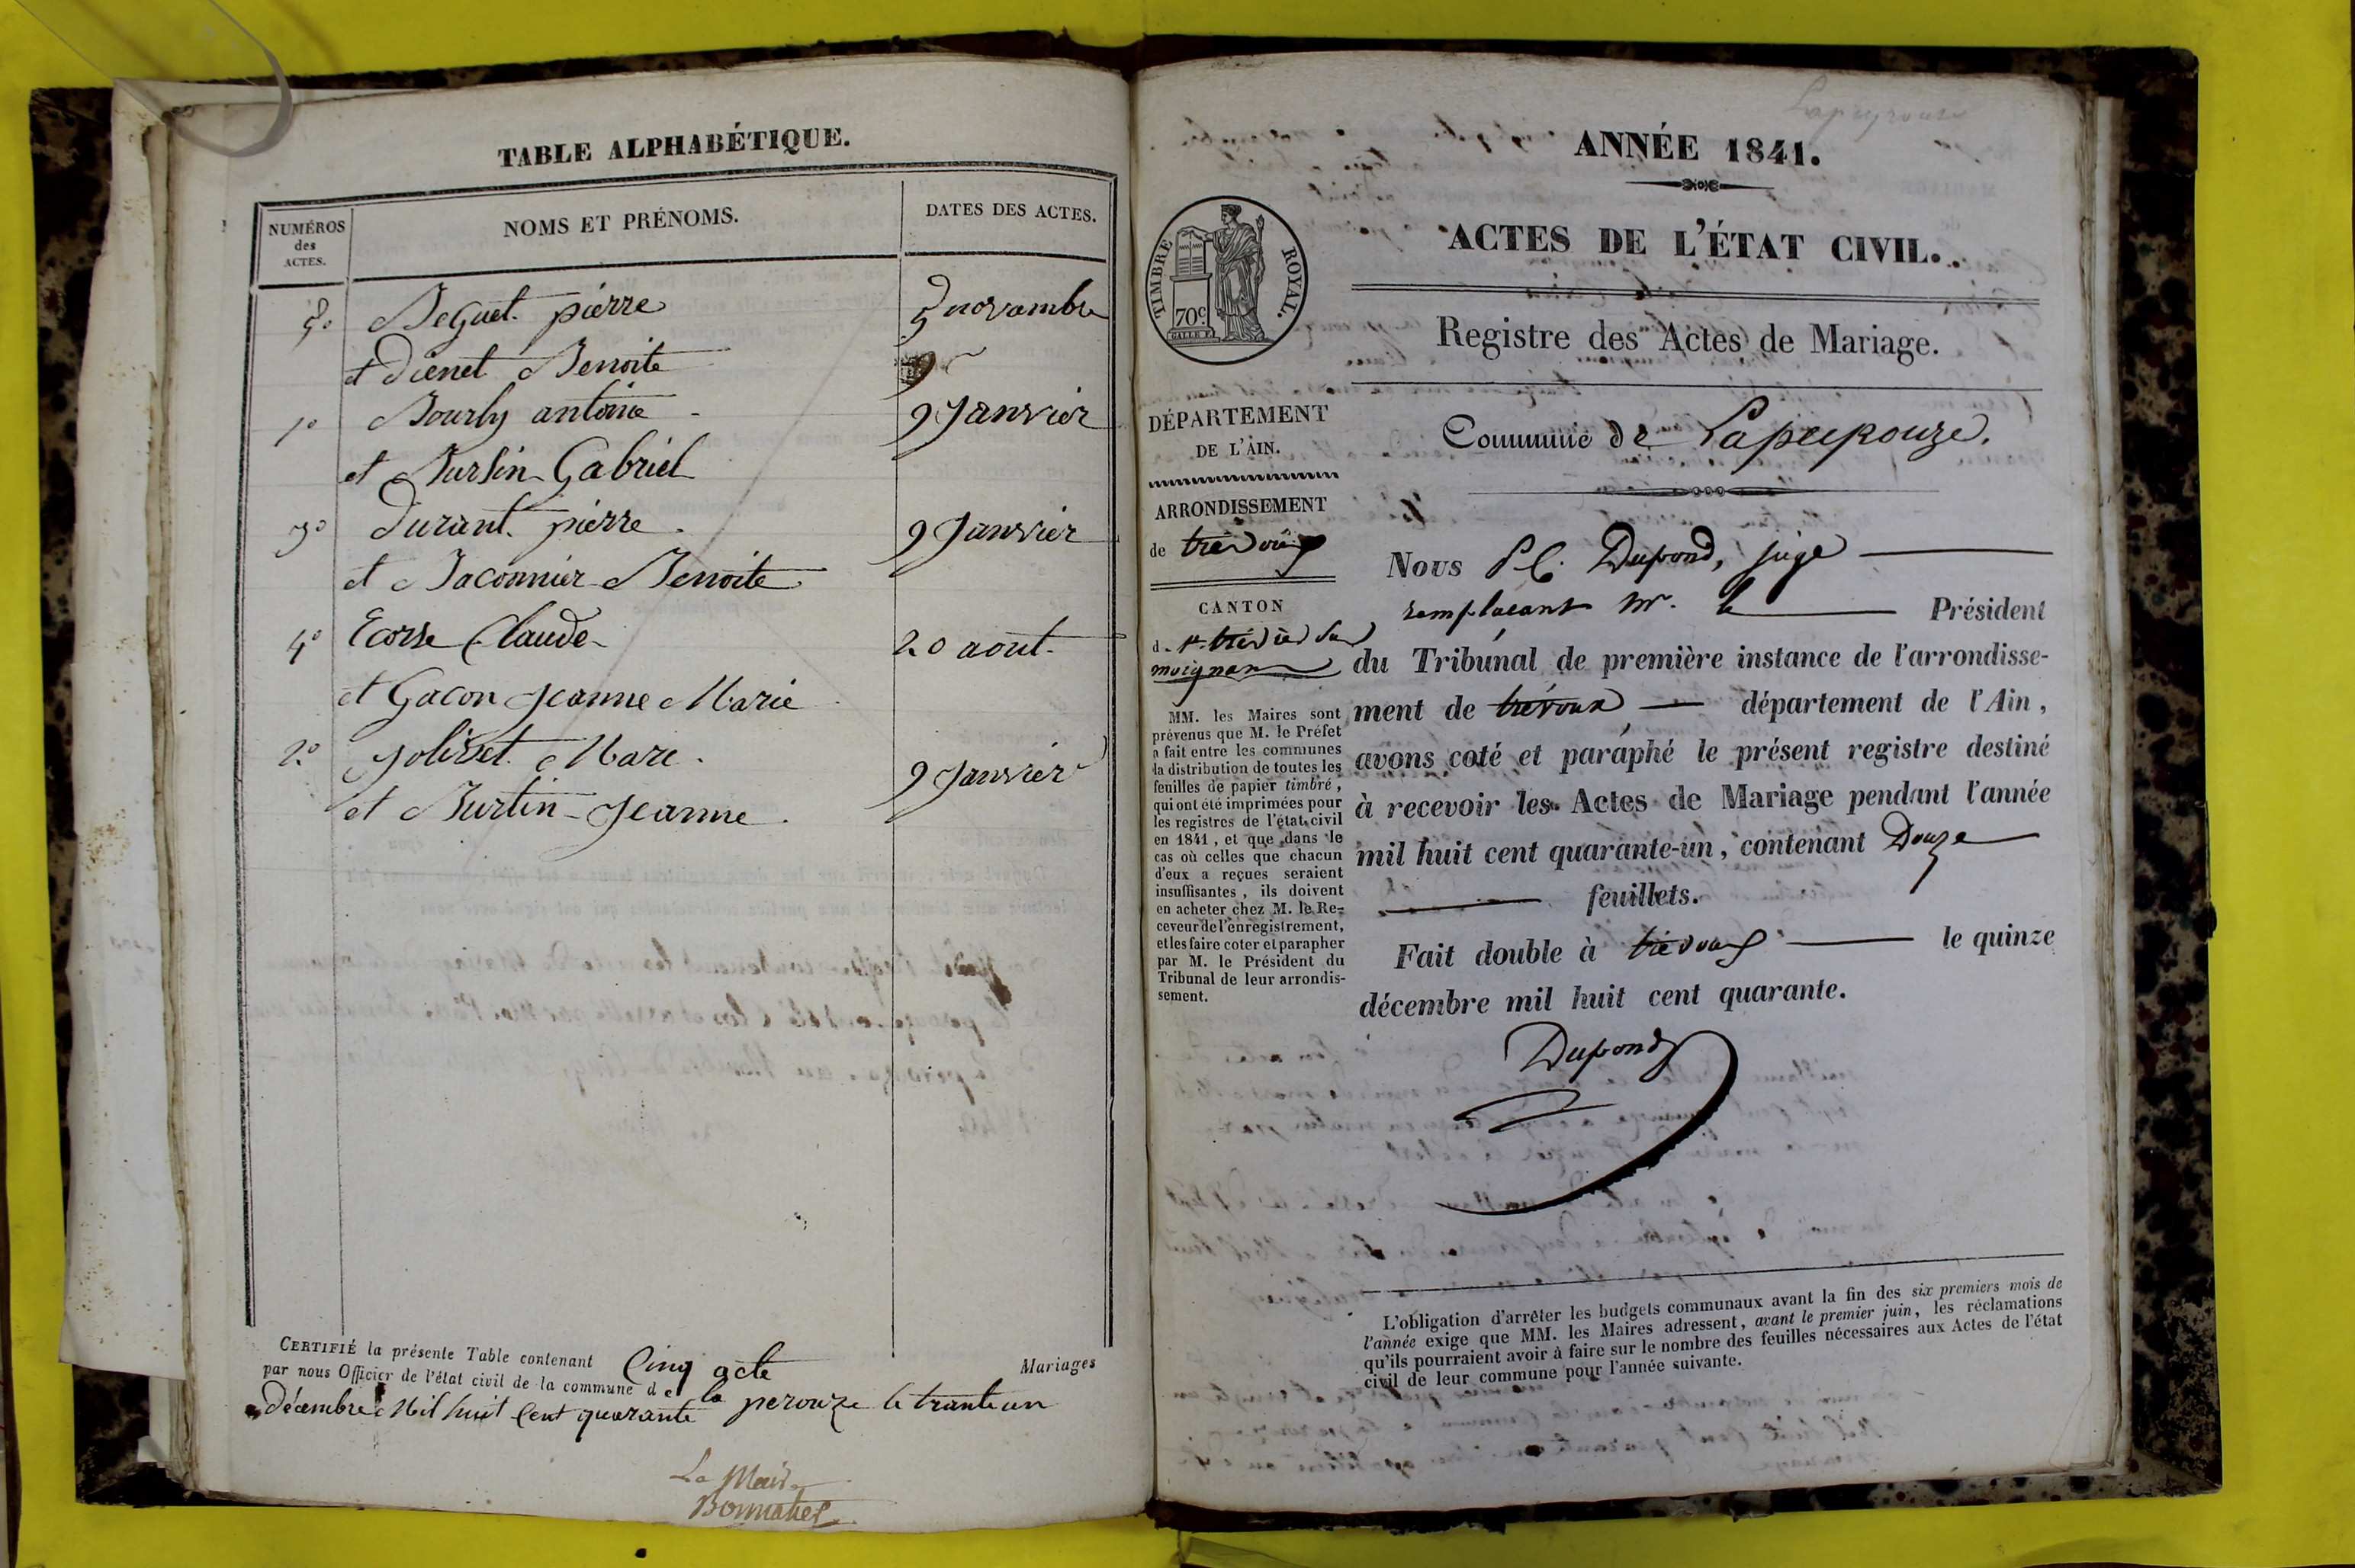 TABLE ALPHABÉTIQUE.
NUMÉROS
des
ACTES.
NOMS ET PRÉNOMS.
DATES DES ACTES.
5° Beguet pierre 5 novambre
et Dienet Benoite
1° Bourly antoine 9 Janvier
et Burlin Gabriel
3° durant pierre 9 Janvier
et Baconnier Benoite
4° Ecorse Claude 20 aout
et Gacon Jeanne Marie
2° Jolivet Marc
9 Janvier
et Burtin Jeanne
CERTIFIÉ la présente Table contenant Cinq acte Mariages
par nous Officier de l'état civil de la commune de la perouze le trante un
décembre Mil huit Cent quarante
Le Maire
Bonnabel
Lapeyrouse
ANNÉE 1841.
ACTES DE L'ÉTAT CIVIL.
TIMBRE ROYAL.
70c
Registre des Actes de Mariage.
DÉPARTEMENT
DE L'AIN.
ARRONDISSEMENT
de trévoux
CANTON
d. st trivier sur
moignans
MM. les Maires sont
prévenus que M. le Préfet
a fait entre les communes
la distribution de toutes les
feuilles de papier timbré,
qui ont été imprimées pour
les registres de l'état civil
en 1841, et que dans le
cas où celles que chacun
d'eux a reçues seraient
insuffisantes, ils doivent
en acheter chez M. le Re-
ceveur de l'enregistrement,
et les faire coter et parapher
par M. le Président du
Tribunal de leur arrondis-
sement.
Commune de Lapeyrouze.
Nous P C. Dupond, juge
remplacant Mr. le Président
du Tribunal de première instance de l'arrondisse-
ment de trévoux département de l'Ain,
avons coté et paraphé le présent registre destiné
à recevoir les Actes de Mariage pendant l'année
mil huit cent quarante-un, contenant Douze
feuillets.
Fait double à trévoux le quinze
décembre mil huit cent quarante.
Dupond
L'obligation d'arrêter les budgets communaux avant la fin des six premiers mois de
l'année exige que MM. les Maires adressent, avant le premier juin, les réclamations
qu'ils pourraient avoir à faire sur le nombre des feuilles nécessaires aux Actes de l'état
civil de leur commune pour l'année suivante.